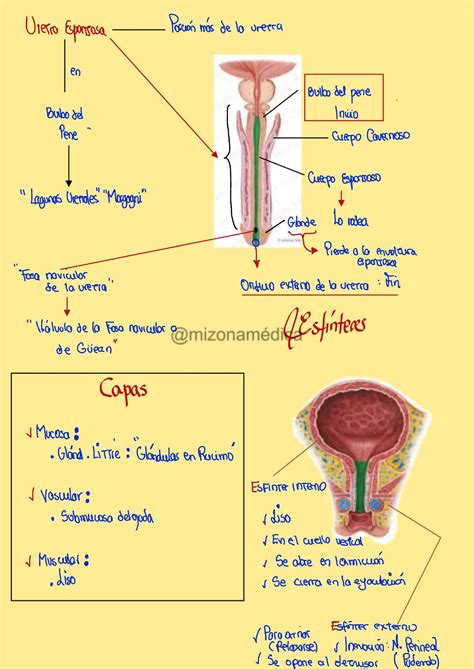 Uretra Esponjosa
Porción más de la uretra
en
Bulbo del
Pene
"Lagunas Uretrales" "Morgagni"
Bulbo del pene
Inicio
Cuerpo Cavernoso
Cuerpo Esponjoso
Glande
Lo rodea
Pierde a la envoltura
esponjosa
Orificio externo de la uretra : Fin
"Fosa navicular
de la uretra"
"Válvula de la Fosa navicular o
de Güerin"
@mizonamédica
Esfínteres
Capas
Mucosa:
. Gland. Littre: "Glándulas en Racimo"
Vascular:
. Submucosa delgada
Muscular:
. Liso
Esfínter interno
Liso
En el cuello vesical
Se abre en la micción
Se cierra en la eyaculación
Esfínter externo
Para orinar
(Relajarse)
Se opone al detrusor
Inervación: N. Perineal
(Pudendo)